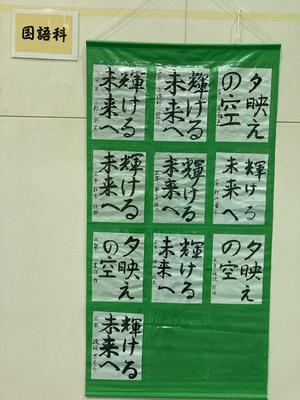 国語科
夕映え
の空
輝ける
未来へ
輝ける
未来へ
輝ける
未来へ
輝ける
未来へ
輝ける
未来へ
夕映え
の空
輝ける
未来へ
夕映え
の空
輝ける
未来へ